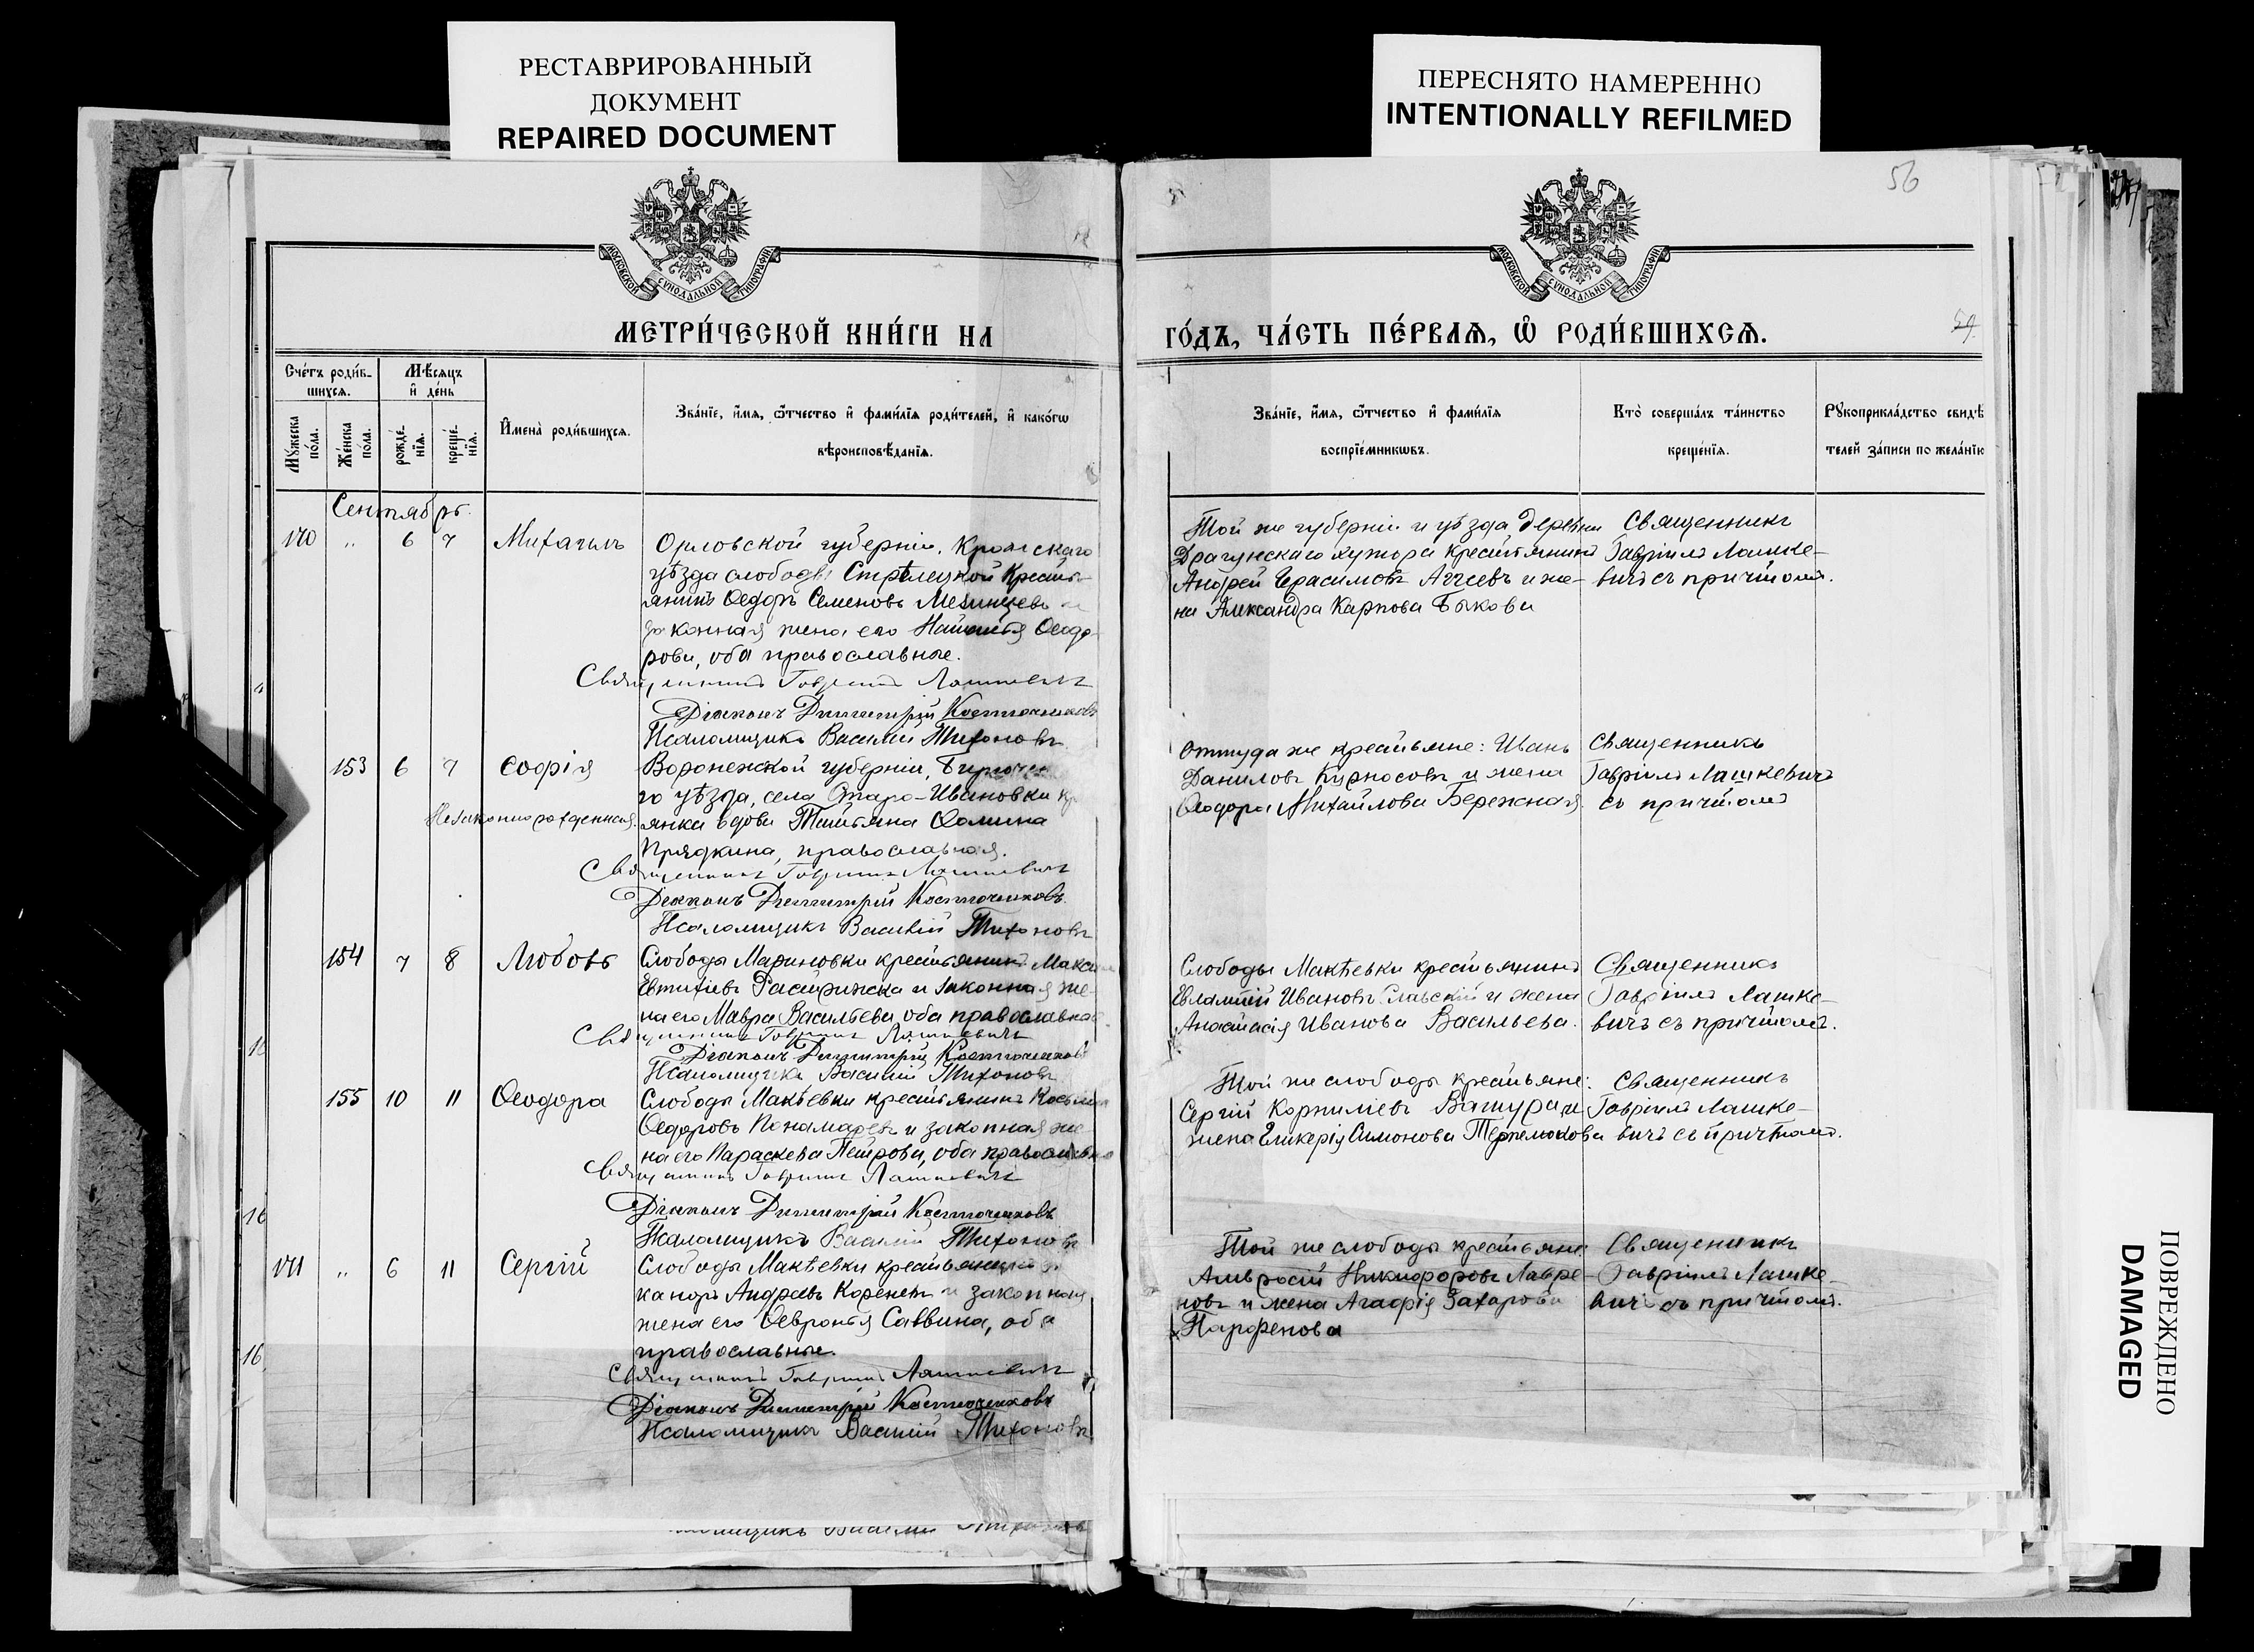 РЕСТАВРИРОВАННЫЙ
ДОКУМЕНТ
REPAIRED DOCUMENT
ПЕРЕСНЯТО НАМЕРЕННО
INTENTIONALLY REFILMED
56
МОСКОВСКОЙ СѴНОДАЛЬНОЙ ТИПОГРАФІИ
МОСКОВСКОЙ СѴНОДАЛЬНОЙ ТИПОГРАФІИ
МЕТРИ́ЧЕСКОЙ КНИ́ГИ НА
ГО́ДЪ, ЧА́СТЬ ПЕ́РВАЯ, Ѿ РОДИ́ВШИХСЯ.
Сче́тъ роди́в-
шихся.
Мѣсяцъ
и де́нь
Мꙋжеска
по́ла.
Же́нска
по́ла.
рожде́-
нія.
креще́-
нія.
Имена̀ роди́вшихся.
Зва́ніе, и́мя, ѻ́тчество и фами́лія роди́телей, и како́гѡ
вѣроисповѣ́данія.
Зва́ніе, и́мя, ѻ́тчество и фами́лія
воспріе́мникѡвъ.
Кто̀ соверша́лъ та́инство
креще́нія.
Рꙋкоприкла́дство свидѣ́
телей за́писи по жела́нію
Сентябрь.
170 " 6 7 Михаилъ
Орловской губерніи, Кромскаго
уѣзда слободы Стрѣлецкой Кресть-
янинъ Ѳедоръ Семеновъ Мезинцевъ и
законная жена его Наталія Ѳеодо-
рова, оба православные.
Священникъ Гавріилъ Лашкевичъ
Діаконъ Димитрій Косточкиковъ
Псаломщикъ Василій Тихоновъ
Той же губерніи и уѣзда деревни
Драгунскаго хутора крестьянинъ
Андрей Герасимовъ Агѣевъ и же-
на Александра Карпова Быкова
Священникъ
Гавріилъ Лашке-
вичъ съ причтомъ.
153 6 7 Софія
Незаконнорожденная.
Воронежской губерніи,
го уѣзда, села Старо-Ивановки кр
янка вдова Татьяна Ѳомина
Прядкина, православная.
Священникъ Гавріилъ Лашкевичъ
Діаконъ Димитрій
Псаломщикъ Василій Тихоновъ
Оттуда же крестьяне: Иванъ
Даниловъ Курносовъ и жена
Ѳеодора Михайлова Бережная.
Священникъ
Гавріилъ Лашкевичъ
съ причтомъ
154 7 8 Любовь
Слободы Мариновки крестьянинъ Макси
Евтихіевъ и законная же-
на его Мавра Васильева, оба православные
Священникъ Гавріилъ Лашкевичъ
Діаконъ Димитрій
Псаломщикъ Василій Тихоновъ
Слободы Макѣевки крестьянинъ
Евлампій Ивановъ Славскій и жена
Анастасія Иванова Васильева.
Священникъ
Гавріилъ Лашке-
вичъ съ причтомъ.
155 10 11 Ѳеодора
Слободы Макѣевки крестьянинъ Косьма
Ѳедоровъ Понамаревъ и законная же-
на его Параскева Петрова, оба православные
Священникъ Гавріилъ Лашкевичъ
Діаконъ Димитрій
Псаломщикъ Василій Тихоновъ
Той же слободы крестьяне:
Сергій Корниліевъ Вашура и
жена Гликерія Симонова
Священникъ
Гавріилъ Лашке-
вичъ съ причтомъ.
171 " 6 11 Сергій
Слободы Макѣевки крестьянинъ
каноръ Андреевъ Кореневъ и законная
жена его Ѳевронія Саввина, оба
православные.
Священникъ Гавріилъ Лашкевичъ
Діаконъ Димитрій
Псаломщикъ Василій Тихоновъ
Той же слободы крестьяне:
Амвросій Никифоровъ Лавре-
новъ и жена Агафія Захарова
Парфенова
Священникъ
Гавріилъ Лашке-
вичъ съ причтомъ.
ПОВРЕЖДЕНО
DAMAGED